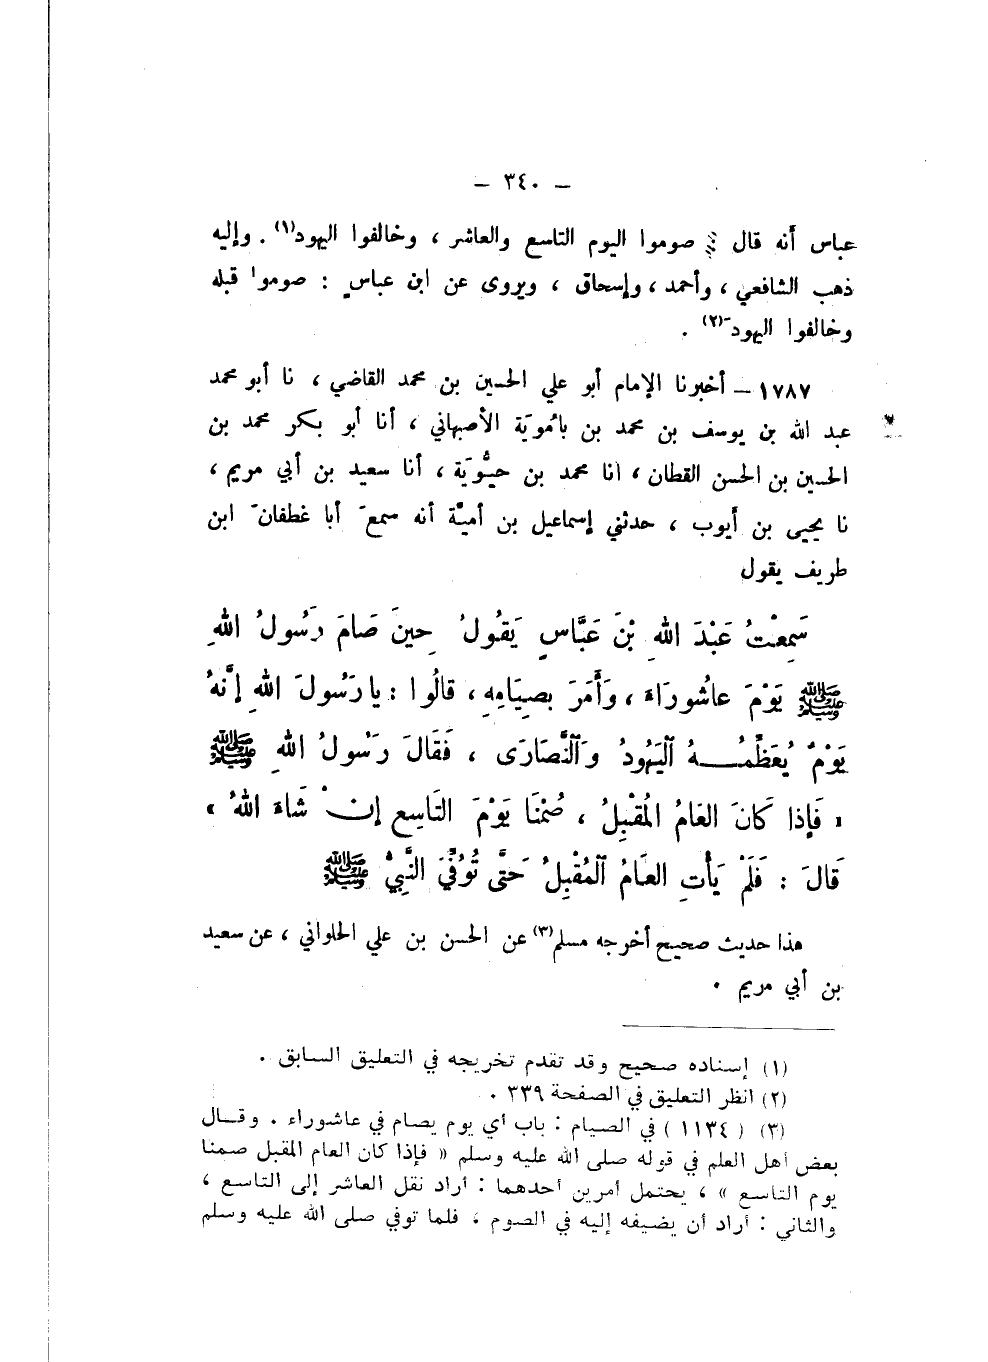 – ٣٤٠ –
عباس أنه قال : صوموا اليوم التاسع والعاشر ، وخالفوا اليهود(١) . وإليه
ذهب الشافعي ، وأحمد ، وإسحاق ، ويروى عن ابن عباسٍ : صوموا قبله
وخالفوا اليهودَ(٢) .
١٧٨٧ – أخبرنا الإمام أبو علي الحسين بن محمد القاضي ، نا أبو محمد
عبد الله بن يوسف بن محمد بن بامُويَة الأصبهاني ، أنا أبو بكر محمد بن
الحسين بن الحسن القطان ، أنا محمد بن حيُّويَة ، أنا سعيد بن أبي مريم ،
نا يحيى بن أيوب ، حدثني إسماعيل بن أميَّة أنه سمعَ أبا غطفانَ ابن
طريف يقول
سَمِعْتُ عَبْدَ اللهِ بْنَ عَبَّاسٍ يَقُولُ حِينَ صَامَ رَسُولُ اللهِ
ﷺ يَوْمَ عاشُورَاءَ ، وَأَمَرَ بصِيَامِهِ ، قالُوا : يا رَسُولَ اللهِ إنَّهُ
يَوْمٌ يُعَظِّمُـــهُ الْيَهُودُ وَالنَّصَارَى ، فَقَالَ رَسُولُ اللهِ ﷺ
« فَإذا كَانَ العَامُ المُقْبِلُ ، صُمْنَا يَوْمَ التَاسِعِ إنْ شَاءَ اللهُ »
قَالَ : فَلَمْ يَأْتِ العَامُ الْمُقْبِلُ حَتَّى تُوُفِّيَ النَّبِيُّ ﷺ
هذا حديث صحيح أخرجه مسلم(٣) عن الحسن بن علي الحلواني ، عن سعيد
بن أبي مريم .
(١) إسناده صحيح وقد تقدم تخريجه في التعليق السابق .
(٢) انظر التعليق في الصفحة ٣٣٩ .
(٣) ( ١١٣٤ ) في الصيام : باب أي يوم يصام في عاشوراء . وقـــال
بعض أهل العلم في قوله صلى الله عليه وسلم « فإذا كان العام المقبل صمنا
يوم التاسع » ، يحتمل أمرين أحدهما : أراد نقل العاشر إلى التاسع ،
والثاني : أراد أن يضيفه إليه في الصوم ، فلما توفي صلى الله عليه وسلم